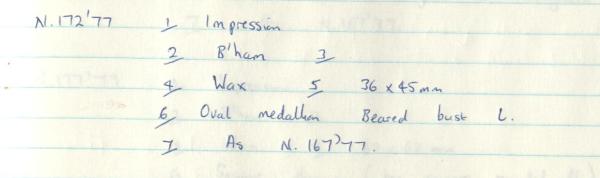 N.172'77 1 Impression
2 B'ham 3
4 Wax 5 36 x 45mm
6 Oval medallion Beared bust L.
7 As N. 167'77.